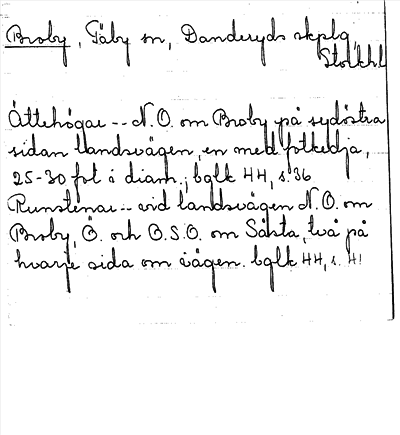 Broby, Täby sn, Danderyds skplg
Stockhl
Ättehögar -- N.O. om Broby på sydöstra
sidan landsvägen, en med fotkedja,
25-30 fot i diam.; bglk 44, s. 36
Runstenar -- vid landsvägen N.O. om
Broby, Ö. och O.S.O. om Såhta, två på
hvarje sida om vägen. bglk 44, s. 41